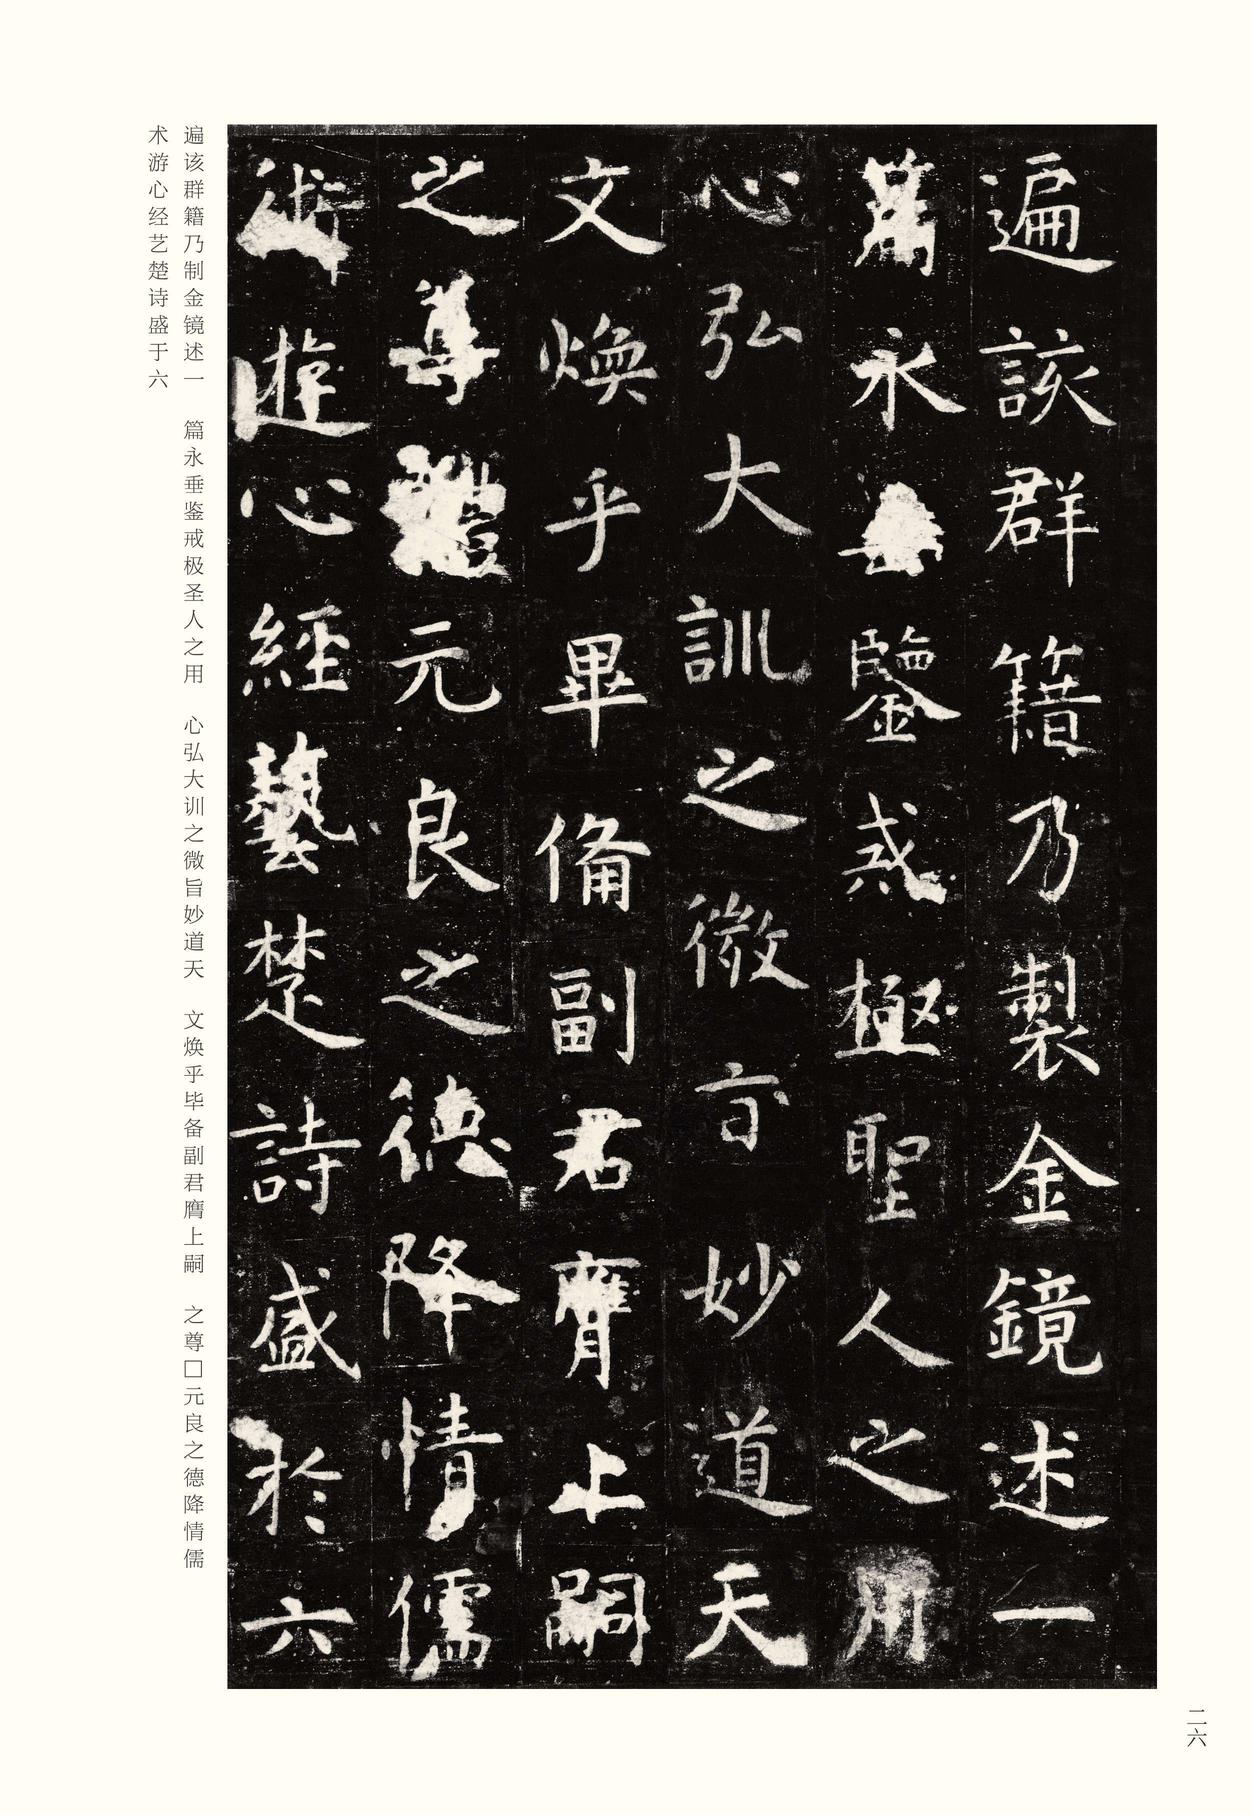 遍該群籍乃製金鏡述一
篇永垂鑒戒極聖人之用
心弘大訓之微旨妙道天
文煥乎畢備副君膺上嗣
之尊體元良之德降情儒
術遊心經藝楚詩盛於六
遍该群籍乃制金镜述一 篇永垂鉴戒极圣人之用 心弘大训之微旨妙道天 文焕乎毕备副君膺上嗣 之尊□元良之德降情儒
术游心经艺楚诗盛于六
二六